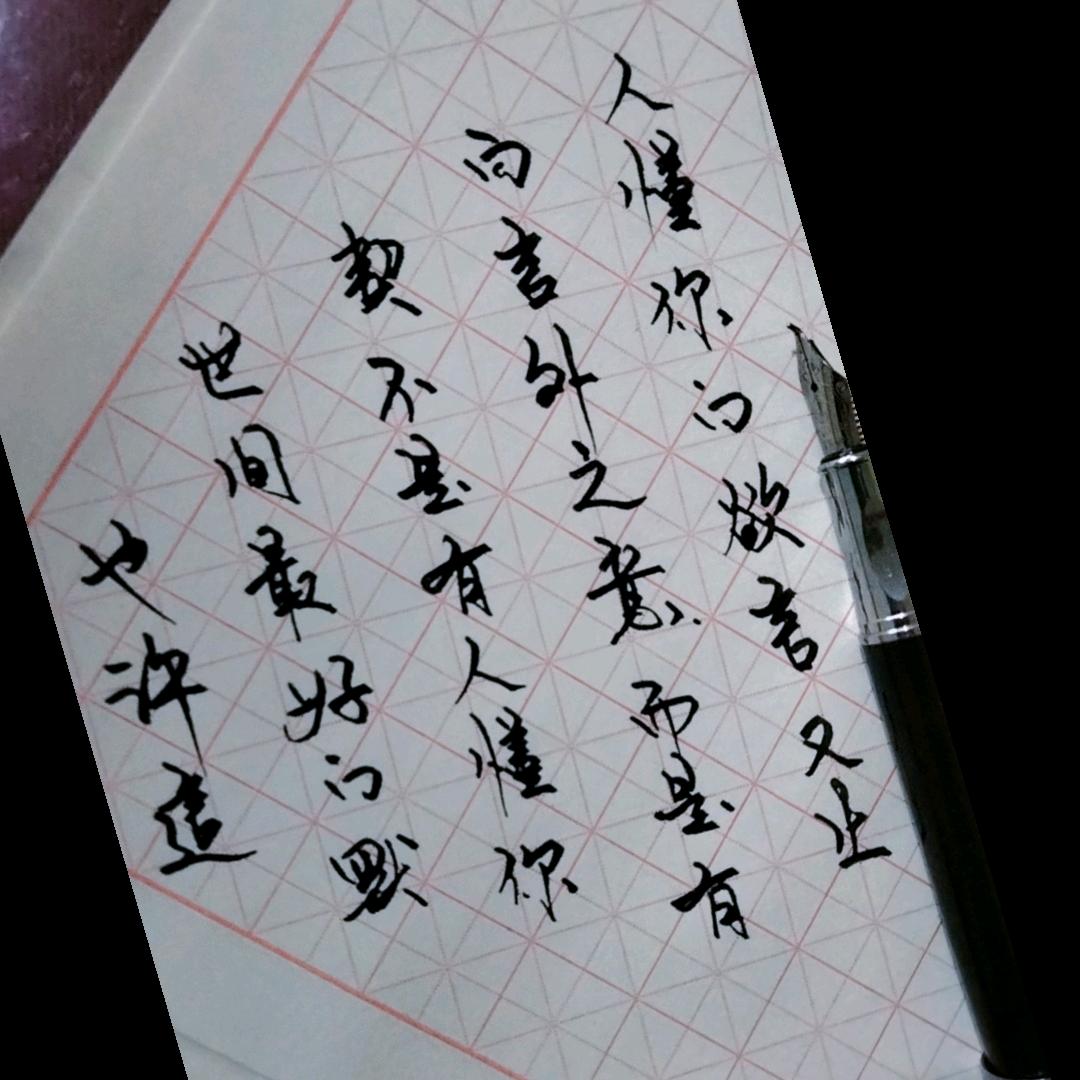 也许這
世间最好的默
契不是有人懂你
的言外之意而是有
人懂你的欲言又止